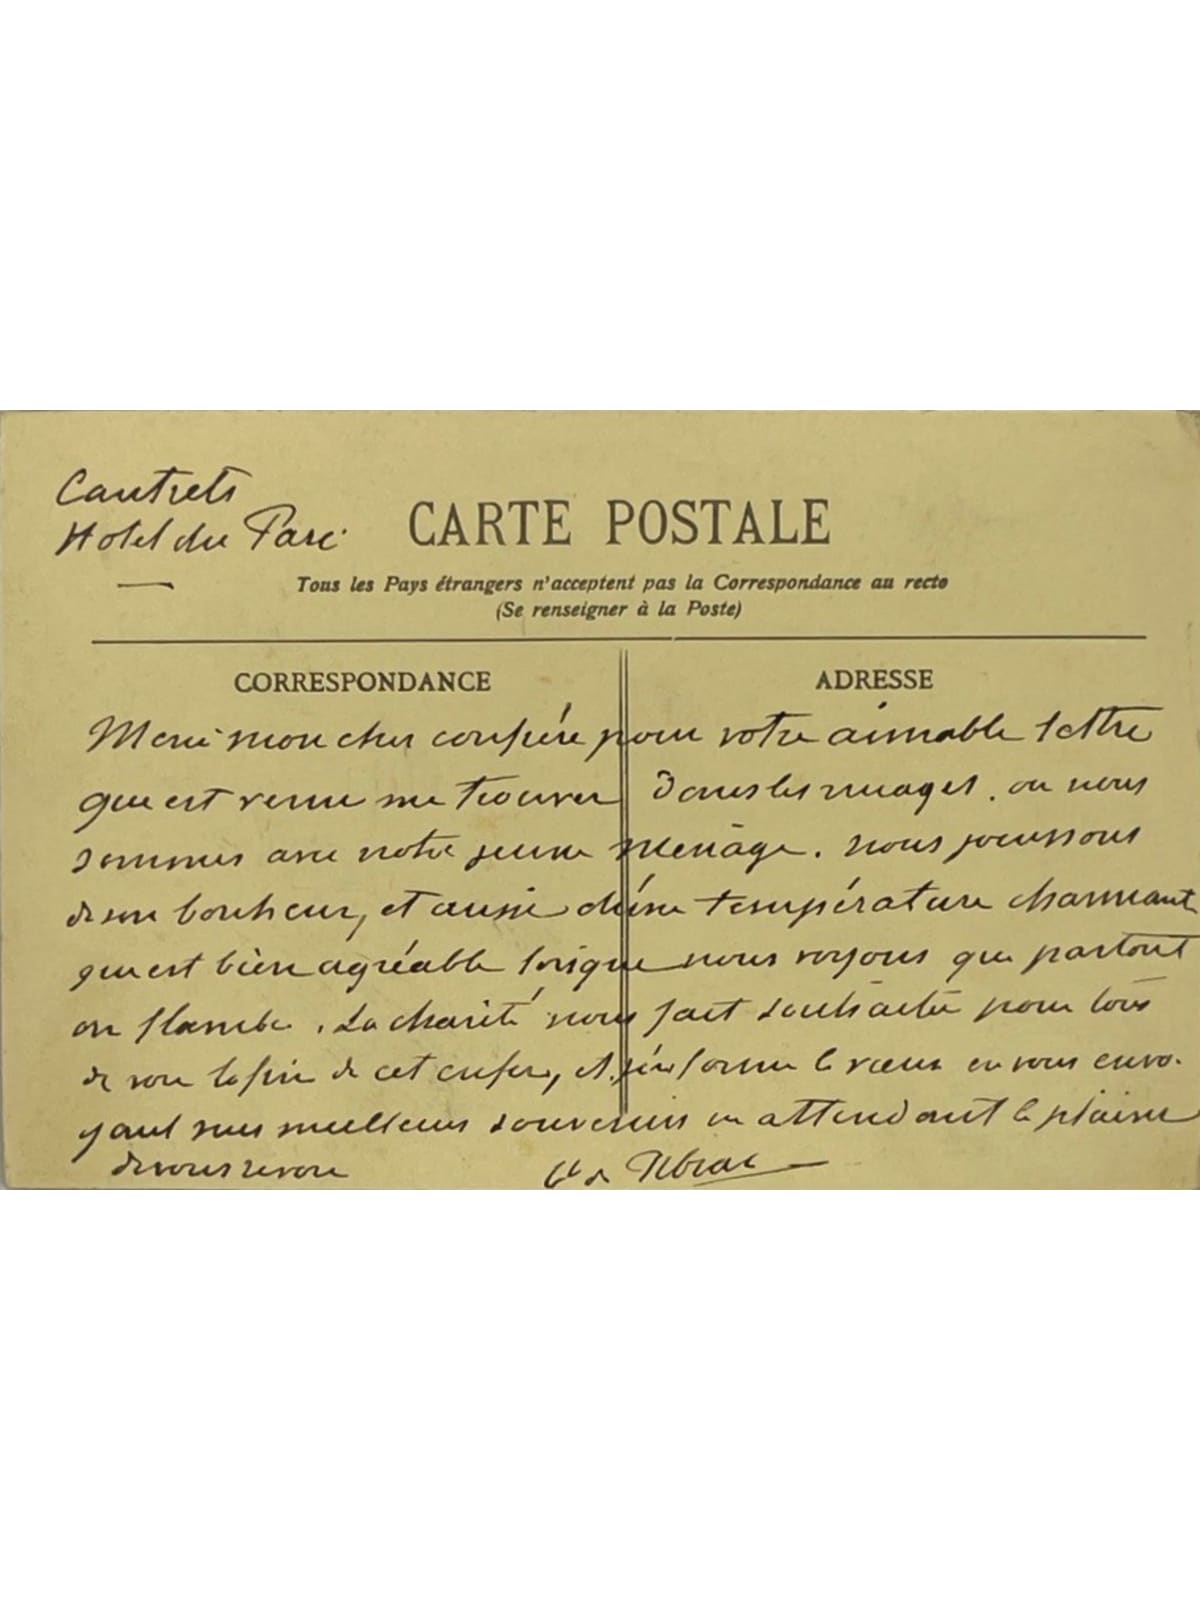 Cautrets
Hotel du Parc
CARTE POSTALE
Tous les Pays étrangers n'acceptent pas la Correspondance au recto
(Se renseigner à la Poste)
CORRESPONDANCE
ADRESSE
Merci mon cher confrère pour votre aimable lettre
qui est venue me trouver dans les nuages. ou nous
sommes avec notre jeune ménage. nous jouissons
de son bonheur, et aussi d'une température charmante
qui est bien agréable lorsque nous voyons que partout
on flambe. La charité nous fait souhaiter pour tous
de voir la fin de cet enfer, et j'en forme le vœux en vous envo-
yant mes meilleurs souvenirs en attendant le plaisir
de vous revoir